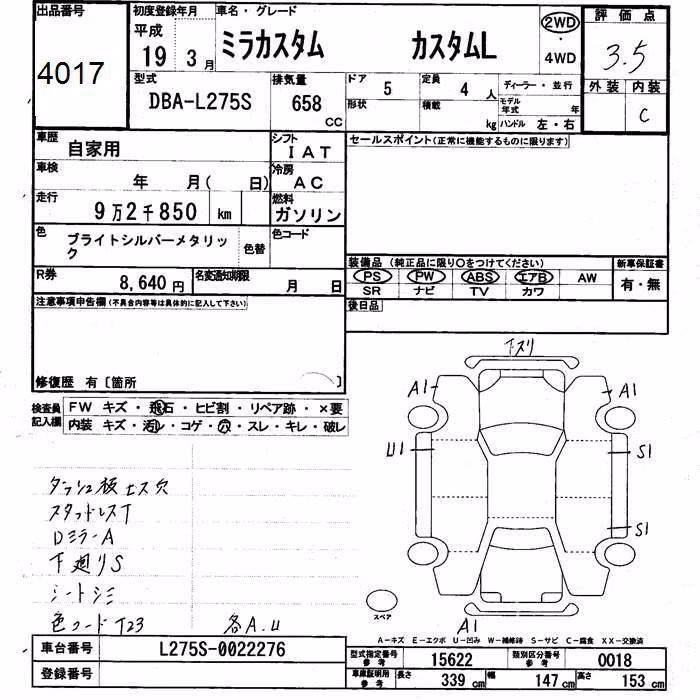 出品番号
4017
初度登録年月
平成
19 3月
車名・グレード
ミラカスタム カスタムL
2WD
・
4WD
評価点
3.5
外装 内装
C
型式
DBA-L275S
排気量
658 CC
ドア 5
定員 4 人
形状
積載 kg
ディーラー・並行
モデル年式 年
ハンドル 左・右
車歴 自家用
シフト IAT
車検 年 月( 日)
冷房 AC
走行 9万2千850 km
燃料 ガソリン
色 ブライトシルバーメタリック
色替
色コード
R券 8,640円
名変通知期限 月 日
セールスポイント(正常に機能するものに限ります)
装備品(純正品に限り○をつけてください)
PS PW ABS エアB AW
SR ナビ TV カワ
新車保証書
有・無
後日品
注意事項申告欄(不具合内容等は具体的に記入して下さい)
修復歴 有〔箇所 〕
検査員記入欄
FW キズ・飛石・ヒビ割・リペア跡・×要
内装 キズ・汚レ・コゲ・穴・スレ・キレ・破レ
ダッシュ板ビス穴
スタッドレスT
DミラーA
下廻りS
シートシミ
色コードT23 各A.U
下スリ
A1 A1
U1 S1
S1
スペア
A1
A-キズ E-エクボ U-凹み W-補修跡 S-サビ C-腐食 XX-交換済
車台番号 L275S-0022276
登録番号
型式指定番号 参考 15622
類別区分番号 参考 0018
車庫証明用 参考 長さ 339 cm 幅 147 cm 高さ 153 cm